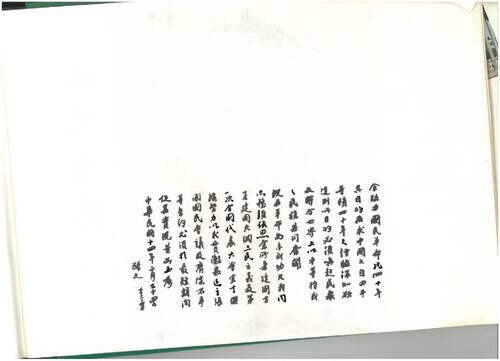 余致力國民革命凡四十年
其目的在求中國之自由平
等積四十年之經驗深知欲
達到此目的必須喚起民衆
及聯合世界上以平等待我
之民族共同奮鬥
現在革命尚未成功凡我同
志務須依照余所著建國方
略建國大綱三民主義及第
一次全國代表大會宣言繼
續努力以求貫徹最近主張
開國民會議及廢除不平
等條約尤須於最短期間
促其實現是所至囑
中華民國十四年二月二十四日
孫文